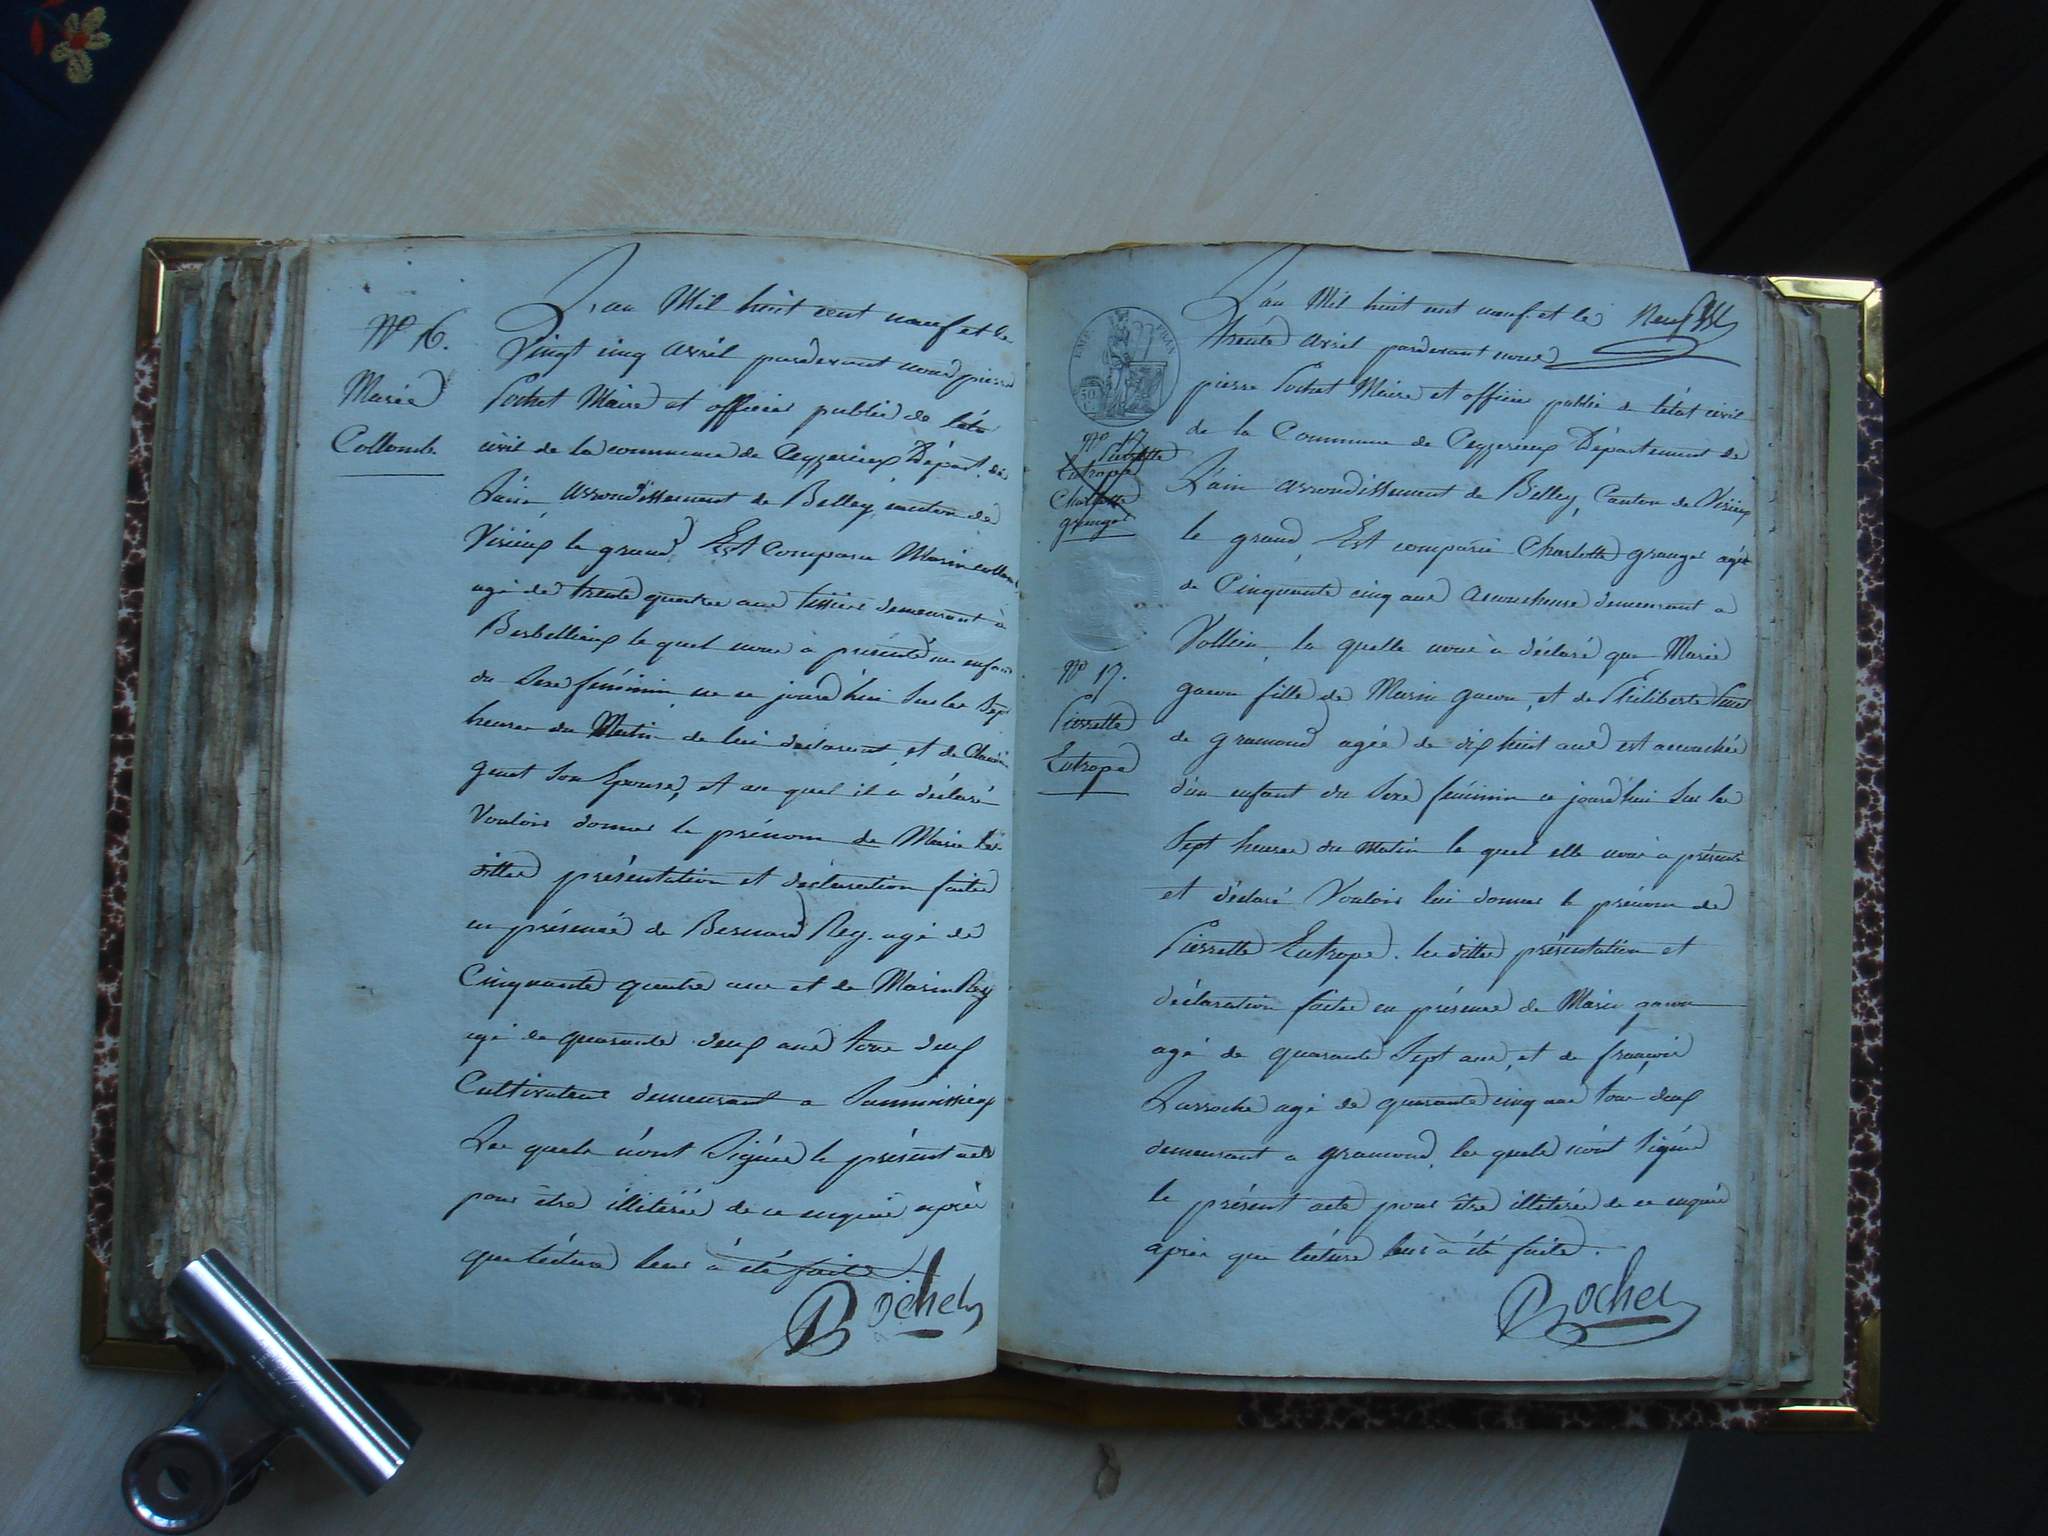 Nº 16.
Marie
Collomb
L'an Mil huit cent neuf et le
Vingt cinq avril pardevant nous pierre
Pochet Maire et officier public de l'état
civil de la commune de Ceyzerieux Départ. de
L'ain arrondissement de Belley canton de
Virieux le grand, Est Comparu Marin collomb
agé de trente quatre ans tissier demeurant à
le quel nous a présenté un enfant
du Sexe féminin né ce jourd'hui Sur les Sept
heures du Matin de lui déclarant, et de
genet Son Epouse, et au quel il a déclaré
Vouloir donner le prénom de Marie les
dittes présentation et déclaration faites
en présence de Bernard Rey agé de
Cinquante quatre ans et de Marin Rey
agé de quarante deux ans tous deux
Cultivateurs demeurant a
Les quels n'ont Signés le présent acte
pour être illiterés de ce enquis après
que lecture leur à été faite
Pochet
EMP. FRAN.
50
Nº 17
Pierrette
Eutrope
Charlotte
granger
Nº 17.
Pierrette
Eutrope
L'an Mil huit cent neuf et le Neuf
trente avril pardevant nous
pierre Pochet Maire et officier public de l'état civil
de la Commune de Ceyzerieux Département de
L'ain arrondissement de Belley, Canton de Virieux
le grand, Est comparue Charlotte granger agée
de Cinquante cinq ans accoucheuse demeurant a
Vollien, la quelle nous à déclaré que Marie
gacon fille de Marin gacon, et de Philiberte
de gramond agée de dix huit ans est accouchée
d'un enfant du Sexe féminin ce jourd'hui Sur les
Sept heures du Matin le quel elle nous a présenté
et déclaré Vouloir lui donner le prénom de
Pierrette Eutrope. les dittes présentation et
déclaration faites en présence de Marin gacon
agé de quarante Sept ans, et de françois
Larroche agé de quarante cinq ans tous deux
demeurant a gramond, les quels n'ont Signés
le présent acte pour être illiterés de ce enquis
après que lecture leur à été faite.
Pochet